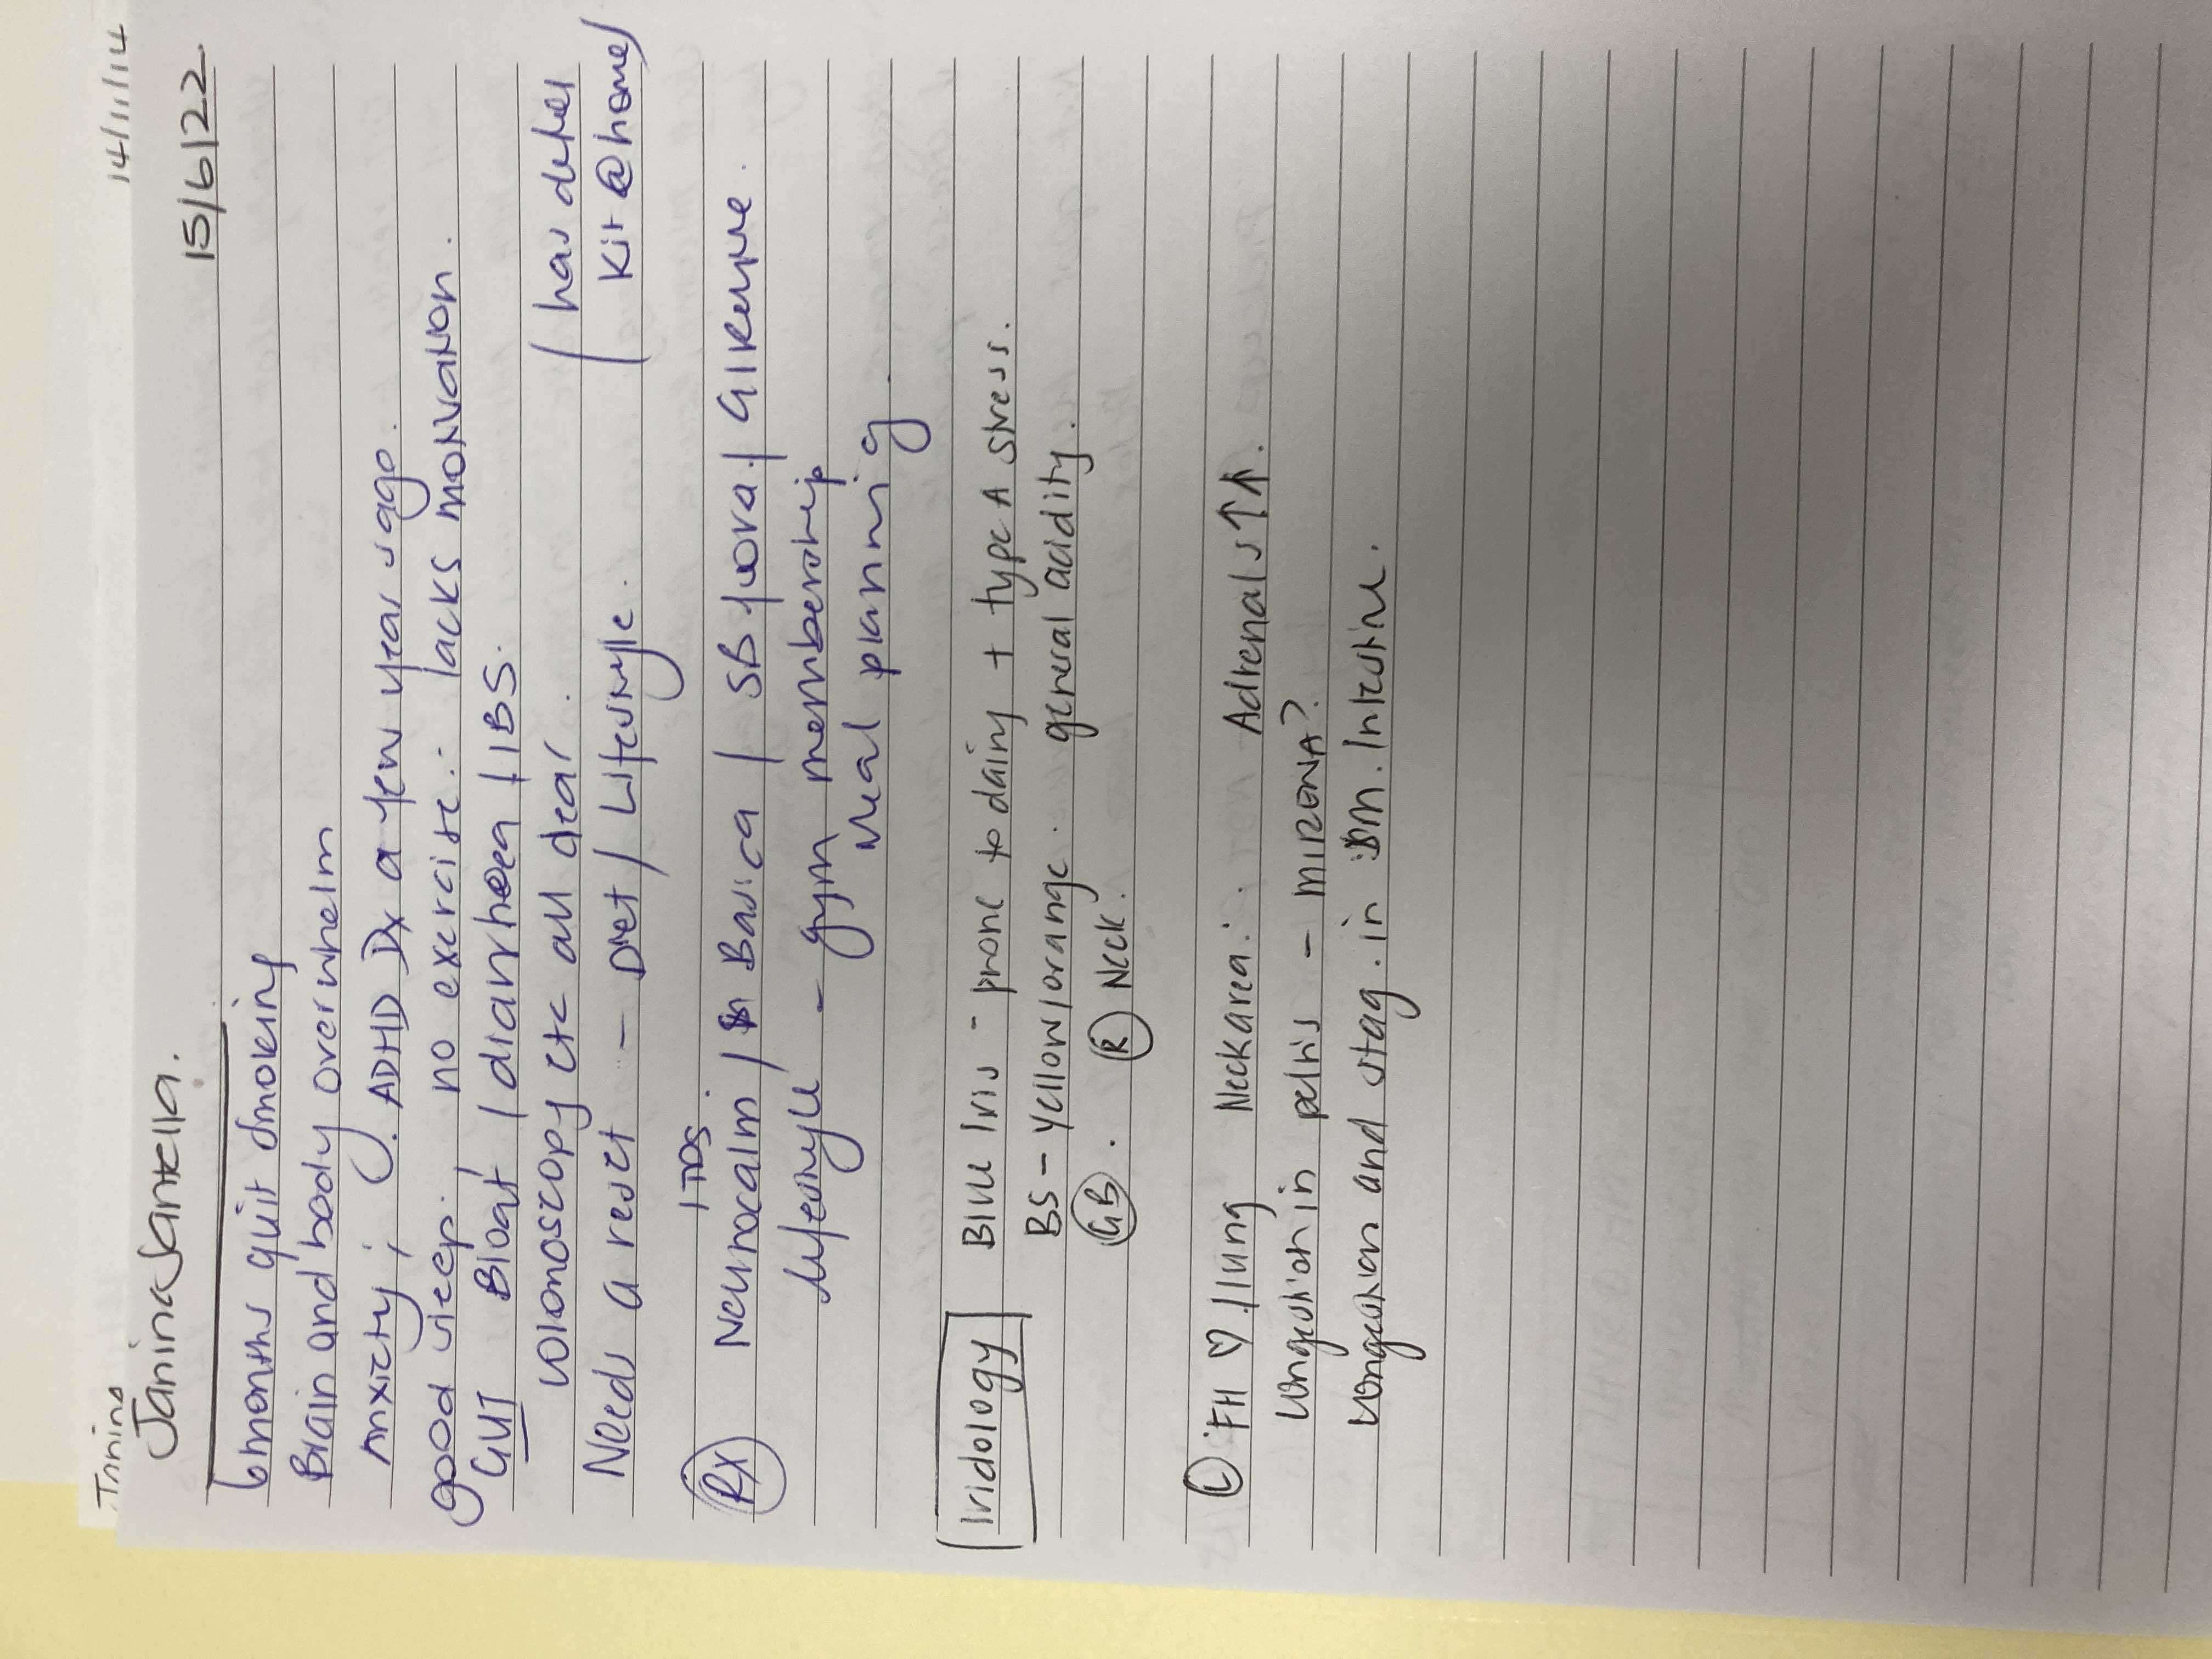 Janina 14/11/14
Janina Santella. 15/6/22
6 months quit smoking
Brain and body overwhelm
Anxiety; . ADHD Dx a few years ago.
good sleep. no exercise. lacks motivation.
GUT Bloat / diarrhoea / IBS.
colonoscopy etc all clear. (has detox
Needs a reset - Diet / Lifestyle. kit @ home)
1TDS
Rx Neurocalm / Basica / SB flora / GI Revive.
Lifestyle - gym membership
Meal planning
Iridology Blue Iris - prone to dairy + type A stress.
BS - Yellow/orange. general acidity.
GB. R Neck.
L FH ♡ / lung Neck area. Adrenals ↑↑.
congestion in pelvis - MIRENA?
congestion and stag. in sm. Intestine.